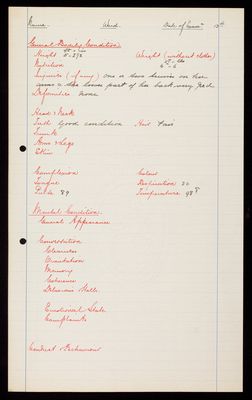 Name. Ward. Date of Exam
General Bodily Condition
Height Weight (without clothes)
Nutrition
Injuries (if any) one or two bruises on her
arms & the lower part of her back very red
Deformities None
Head & Neck
Teeth Good condition Hair Fair
Trunk
Arms & Legs
Skin
Complexion Colour
Tongue Respiration 20
Pulse 89 Temperature 98
Mental Condition.
General Appearance
Conversation
Clearness
Orientation
Memory
Coherence
Delusions Halls.
Emotional State
Complaints
Conduct & Behaviour